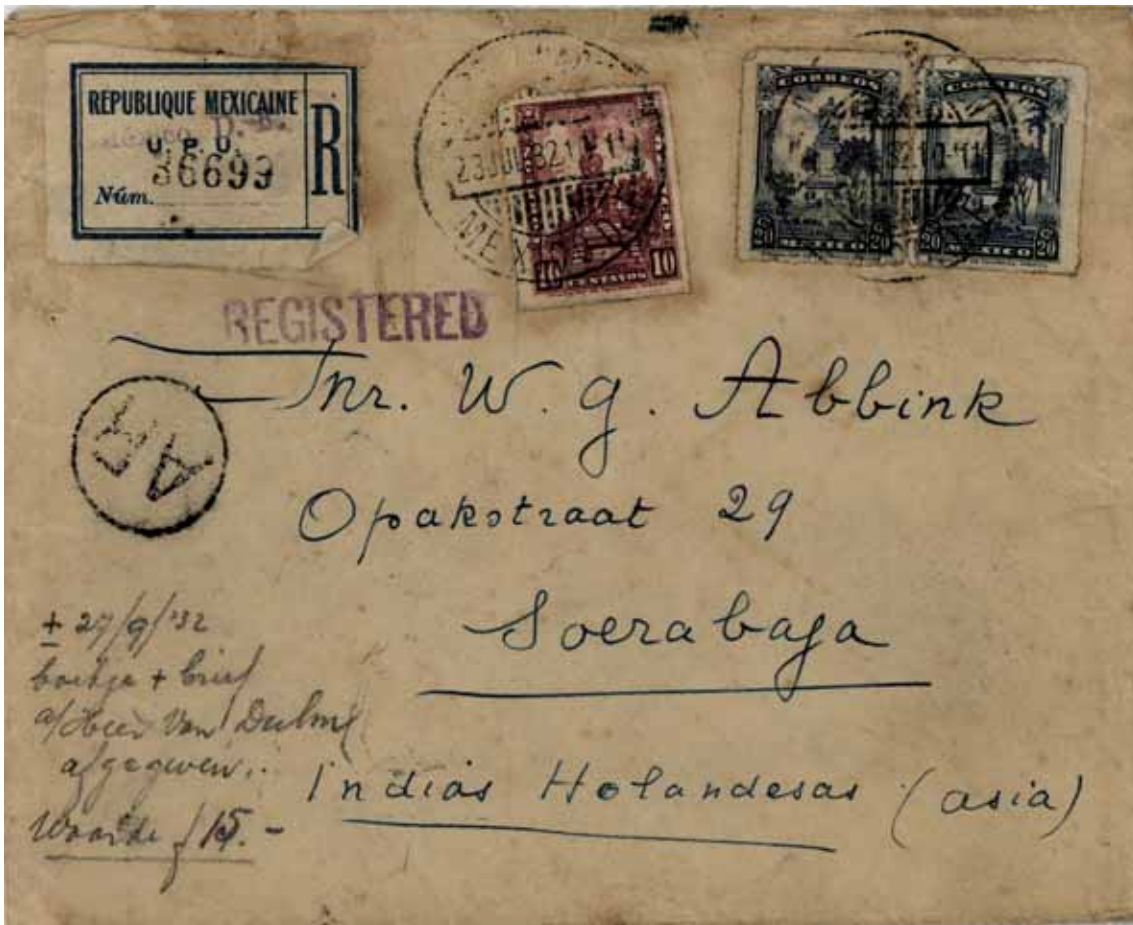 REPUBLIQUE MEXICAINE
U. P. U.
36699
Núm.
R
23 JUL 32
MEX
10 CENTAVOS 10
CORREOS
CORREOS
20 MEXICO 20
20 MEXICO 20
REGISTERED
AR
Mr. W. G. Abbink
Opakstraat 29
Soerabaja
Indias Holandesas (asia)
± 27/9/'32
boekje + brief
a/Heer Van Dulm
afgegeven.
Waarde f 15.-